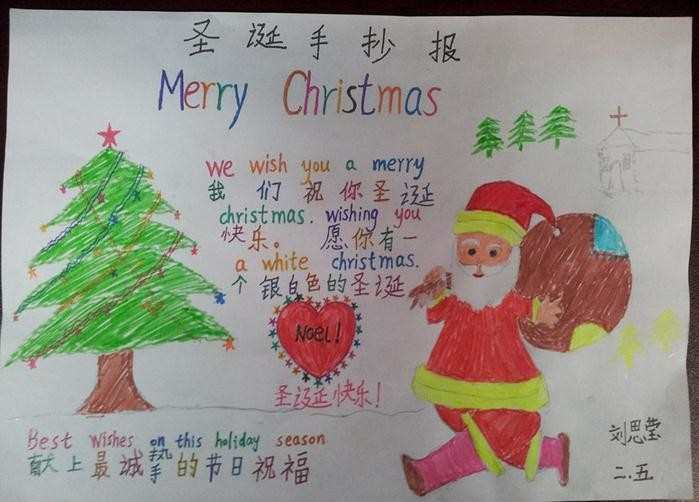 圣诞手抄报
Merry Christmas
We wish you a merry
我们祝你圣诞
christmas. wishing you
快乐。愿你有一
a white christmas.
个银白色的圣诞
Noel!
圣诞快乐!
Best wishes on this holiday season
献上最诚挚的节日祝福
刘思莹
二.五